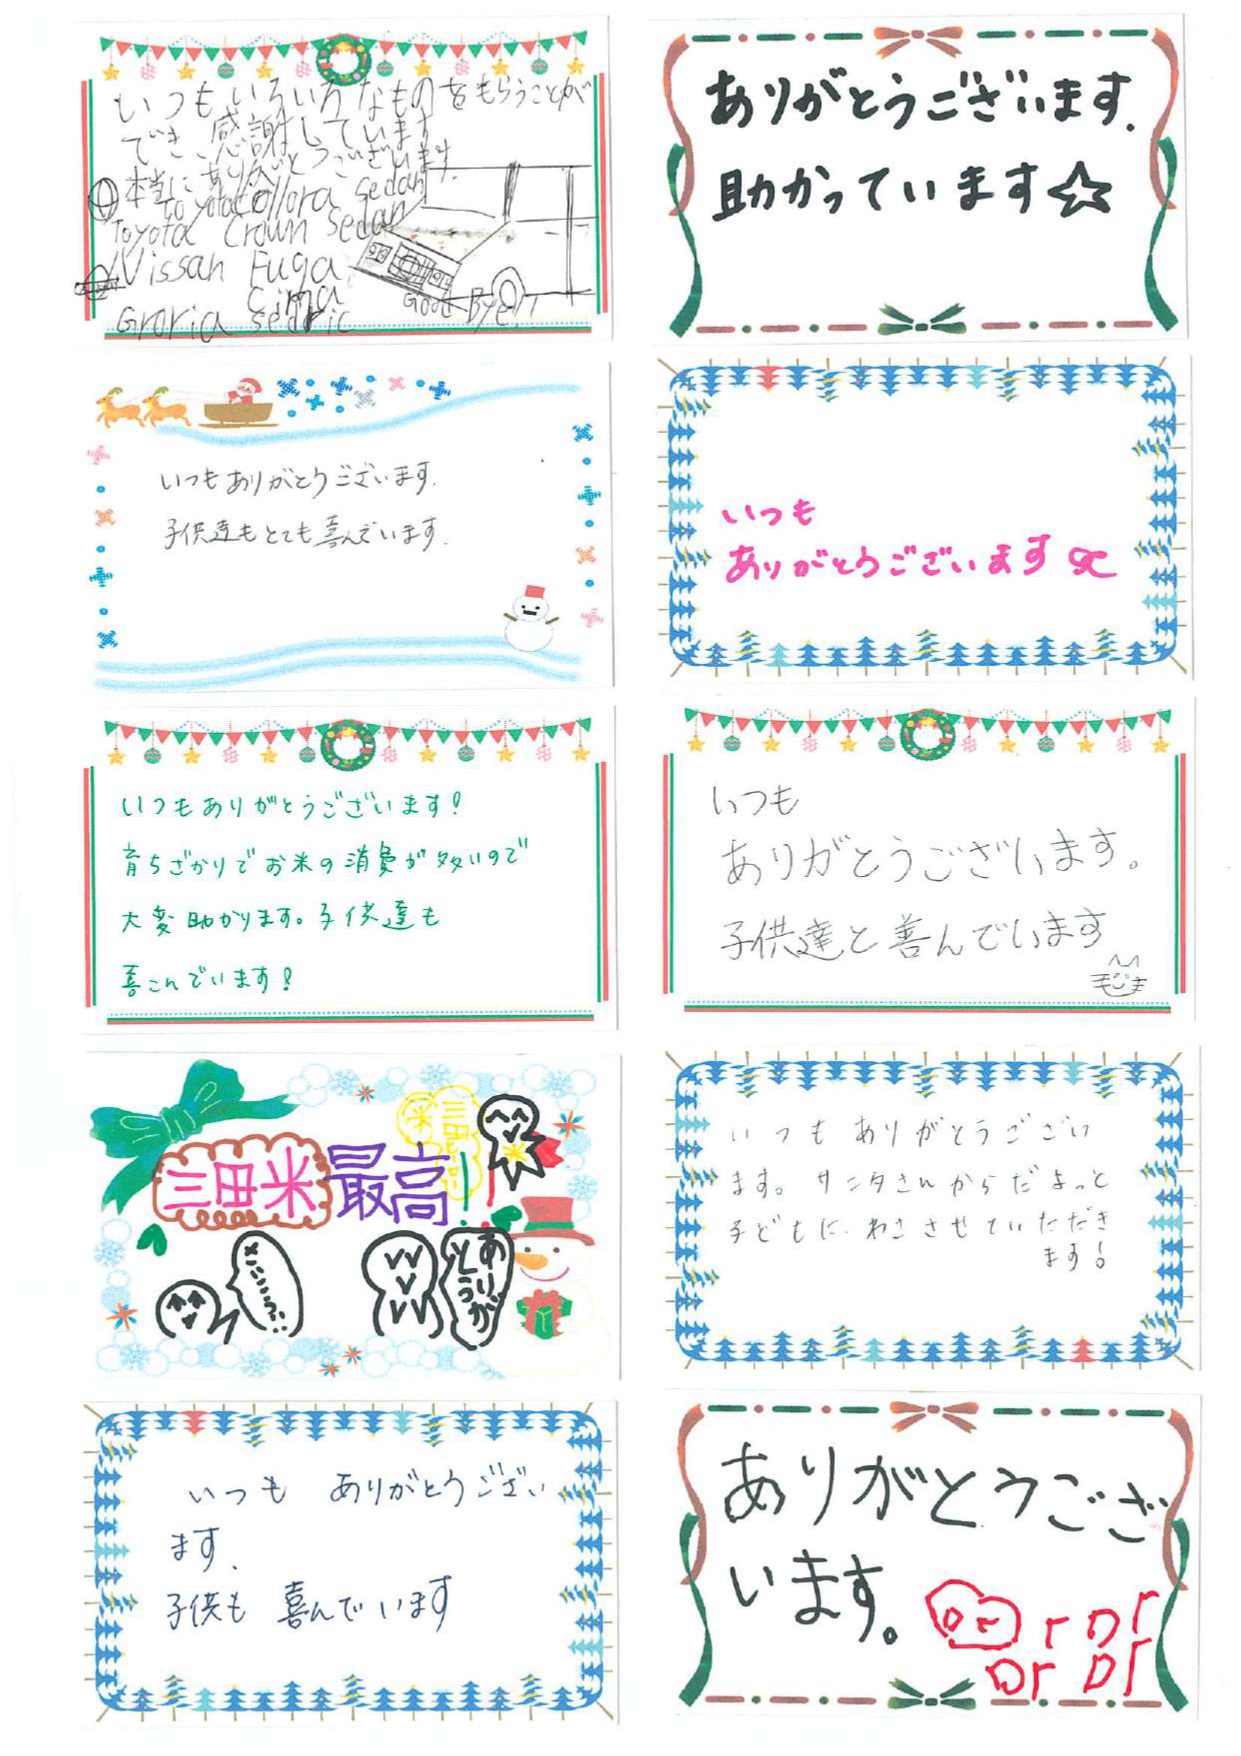 いつもいろいろなものをもらうことが
でき、感謝しています
本当にありがとうございます。
Toyota Collora Sedan
Toyota Crown Sedan
Nissan Fuga
Cima
Groria Sedric
Good Bye!
ありがとうございます.
助かっています☆
いつもありがとうございます.
子供達もとても喜んでいます.
いつも
ありがとうございます
いつもありがとうございます!
育ちざかりでお米の消費が多いので
大変助かります。子供達も
喜こんでいます!
いつも
ありがとうございます。
子供達と喜んでいます
三田米最高!!
三田米
さいこう!!
ありがとう
いつもありがとうござい
ます。サンタさんからだよっと
子どもに、わたさせていただき
ます!
いつも ありがとうござい
ます.
子供も 喜んでいます
ありがとうござ
います。